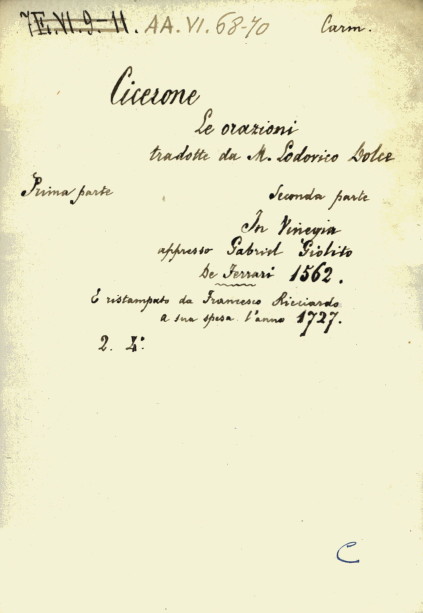 7E.VI.9-11. AA.VI.68-70 Carm.
Cicerone
Le orazioni
tradotte da M. Lodovico Dolce
Prima parte Seconda parte
In Vinegia
appresso Gabriel Giolito
De Ferrari 1562.
E ristampato da Francesco Ricciardo
a sua spesa l'anno 1727.
2. 4º
C